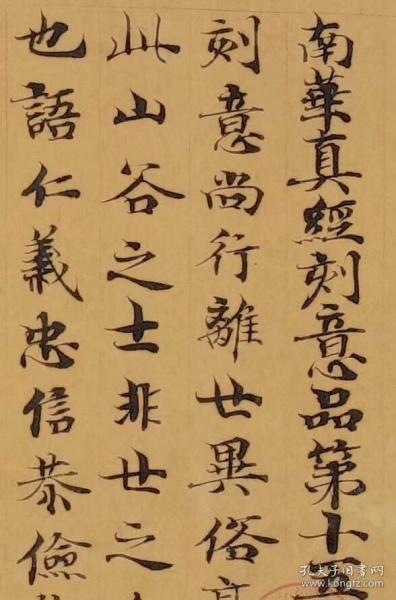 南華真經刻意品第十五
刻意尚行離世異俗高
此山谷之士非世之
也語仁義忠信恭儉
孔夫子旧书网
www.kongfz.com